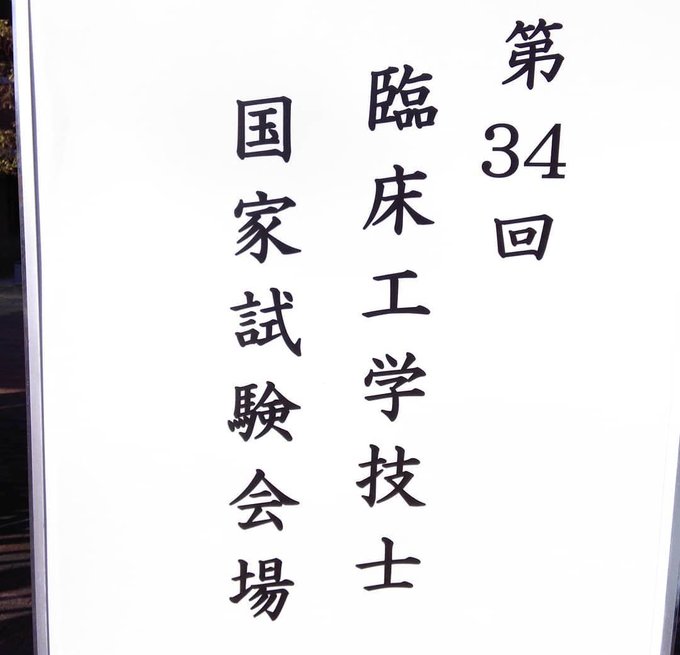 第34回
臨床工学技士
国家試験会場